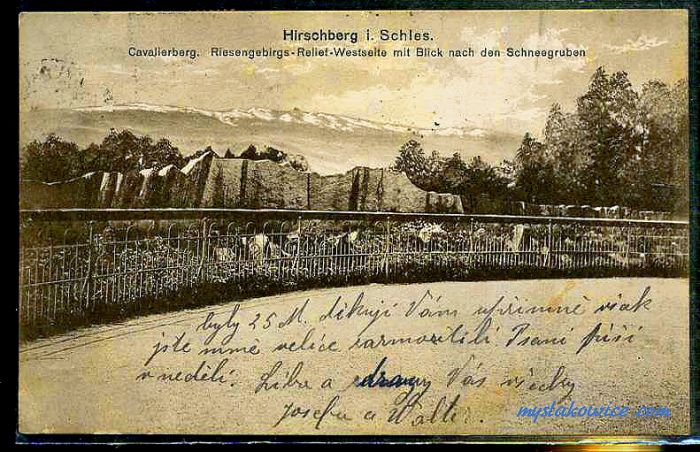 Hirschberg i. Schles.
Cavalierberg. Riesengebirgs-Relief-Westseite mit Blick nach den Schneegruben
byly 25 M. děkuji Vám upřimně však
jste mně velice zarmoutili Psaní píši
v neděli. a Vás všecky
Josefu a Walter.
myslakowice.com